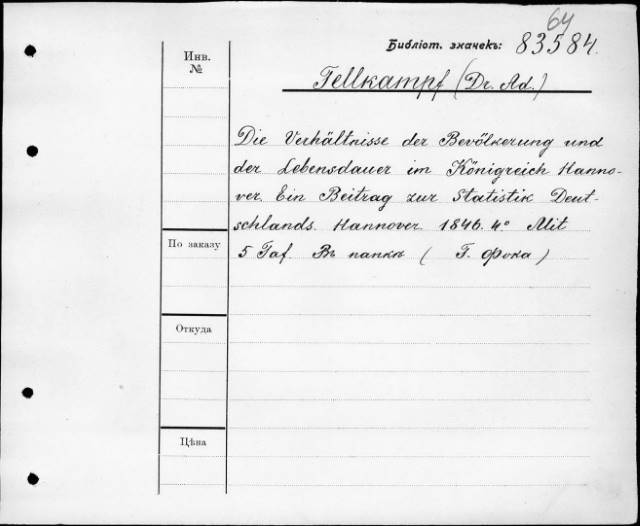 64
Библіот. значекъ: 83584.
Инв.
№
Tellkampf (Dr. Ad.)
Die Verhältnisse der Bevölkerung und
der Lebensdauer im Königreich Hanno-
ver. Ein Beitrag zur Statistik Deut-
schlands. Hannover. 1846. 4° Mit
По заказу
5 Taf. Въ папкѣ ( Г. Фока )
Откуда
Цѣна